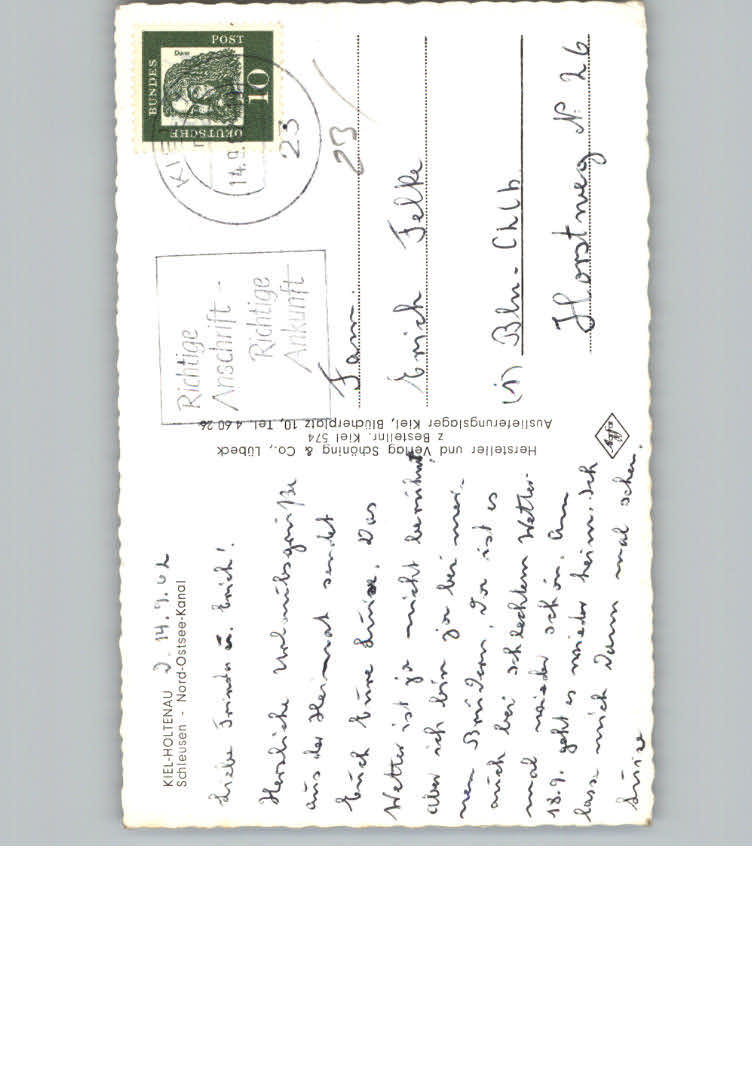 KIEL-HOLTENAU
Schleusen - Nord-Ostsee-Kanal
d. 14.9.62
Liebe Frieda u. Erich!
Herzliche Urlaubsgrüße
aus der Heimat sendet
Euch Eure Luise. Das
Wetter ist ja nicht berühmt
aber ich bin ja bei mei-
nen Brüdern, da ist es
auch bei schlechtem Wetter
mal wieder schön. Am
18.9. geht es wieder heim. Ich
lasse mich dann mal sehen.
Luise
Hersteller und Verlag Schöning & Co., Lübeck
z Bestellnr. Kiel 574
Auslieferungslager Kiel, Blücherplatz 10, Tel. 4 60 26
Agfa
DEUTSCHE BUNDESPOST
Dürer
10
KIEL
14.9.
23
Richtige
Anschrift -
Richtige
Ankunft
23
Fam.
Erich Felke
(1) Bln.- Chlb.
Horstweg No 26